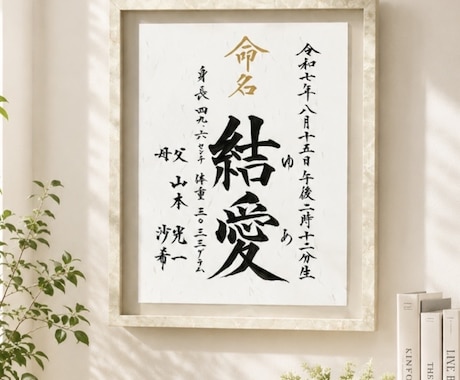 令和七年八月十五日午後二時十二分生
命名
結愛
ゆあ
身長 四九.六センチ 体重 三〇三三グラム
父 山本 光一
母 沙希
KINFO
LIVE B